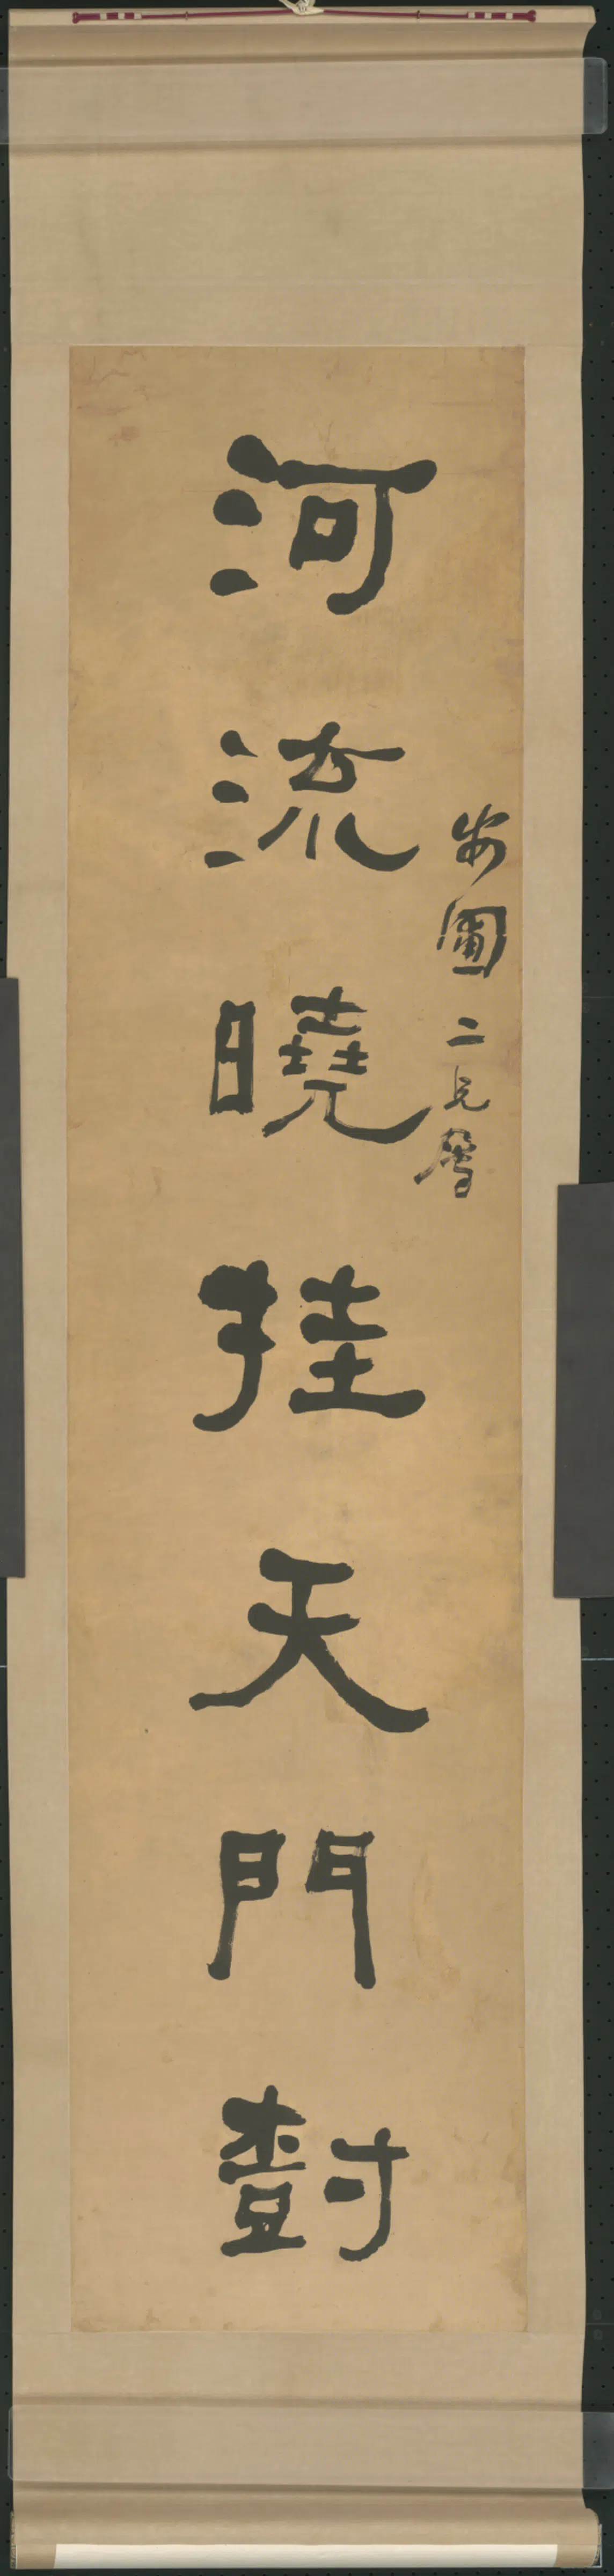 安圃二兄屬
河流曉挂天門樹